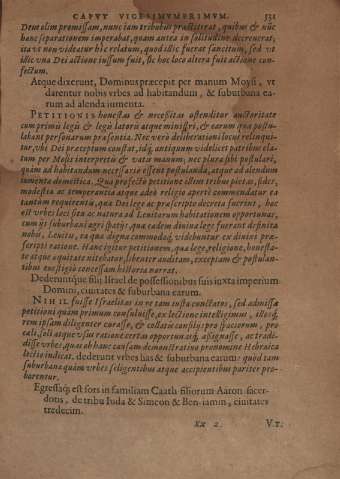 CAPVT VIGESIMVMPRIMVM. 531
Deus olim promissam, nunc iam tribubus præstiterat, quibus & nũc
hanc separationem imperabat, quam antea in solitudine decreuerat,
ita vt non videatur hîc relatum, quod illîc fuerat sancitum, sed vt
illîc vna Dei actione iussum fuit, sic hoc loco altera fuit actione con-
fectum.
Atque dixerunt, Dominus præcepit per manum Moysi, vt
darentur nobis vrbes ad habitandum, & suburbana ea-
rum ad alenda iumenta.
PETITIONIS honestas & necessitas ostenditur auctoritate
cum primis legis & legis latoris atque ministri, & earum qua postu-
labant personarum præsentia. Nec verò deliberationi locus relinqui-
tur, vbi Dei præceptum constat, idq́; antiquum videlicet patribus ela-
tum per Mosis interpretis & vatis manum; nec plura sibi postulari,
quàm ad habitandum necessaria essent postulanda, atque ad alendum
iumenta domestica. Qua profectò petitione istam tribus pietas, fides,
modestia ac temperantia atque adeò religio apertè commendatur ea
tantùm requirentis, qua Dei lege ac præscripto decreta fuerint, hoc
est vrbes loci situ ac natura ad Leuitarum habitationem opportunas,
cum ijs suburbani agri spatijs, qua eadem diuina lege fuerant definita
nobis, Leuitis, ea qua digna commodaq́; videbuntur ex diuini præ-
scripti ratione. Hanc igitur petitionem, qua lege, religione, honesta-
te atque æquitate nitebatur, libenter auditam, exceptam & postulan-
tibus è vestigio concessam historia narrat.
Dederuntque filij Israel de possessionibus suis iuxta imperium
Domini, ciuitates & suburbana earum.
NIHIL fuisse Israëlitas in re tam iusta cunctatos, sed admissæ
petitioni quàm primùm consuluisse, ex lectione intelligimus, illosq́;
rem ipsam diligenter curasse, & collatis consilijs pro spaciorum, pro
cæli, soli atque vsus ratione certas opportunasq́; assignasse, ac tradi-
disse vrbes, quas ob hanc causam demonstratiuo pronomine Hebraica
lectio indicat. dederunt vrbes has & suburbana earum: quòd tam
suburbana quàm vrbes seligentibus atque accipientibus pariter pro-
barentur.
Egressaq́; est sors in familiam Caath filiorum Aaron sacer-
dotis, de tribu Iuda & Simeon & Ben-iamin, ciuitates
tredecim.
XX 2. VT.